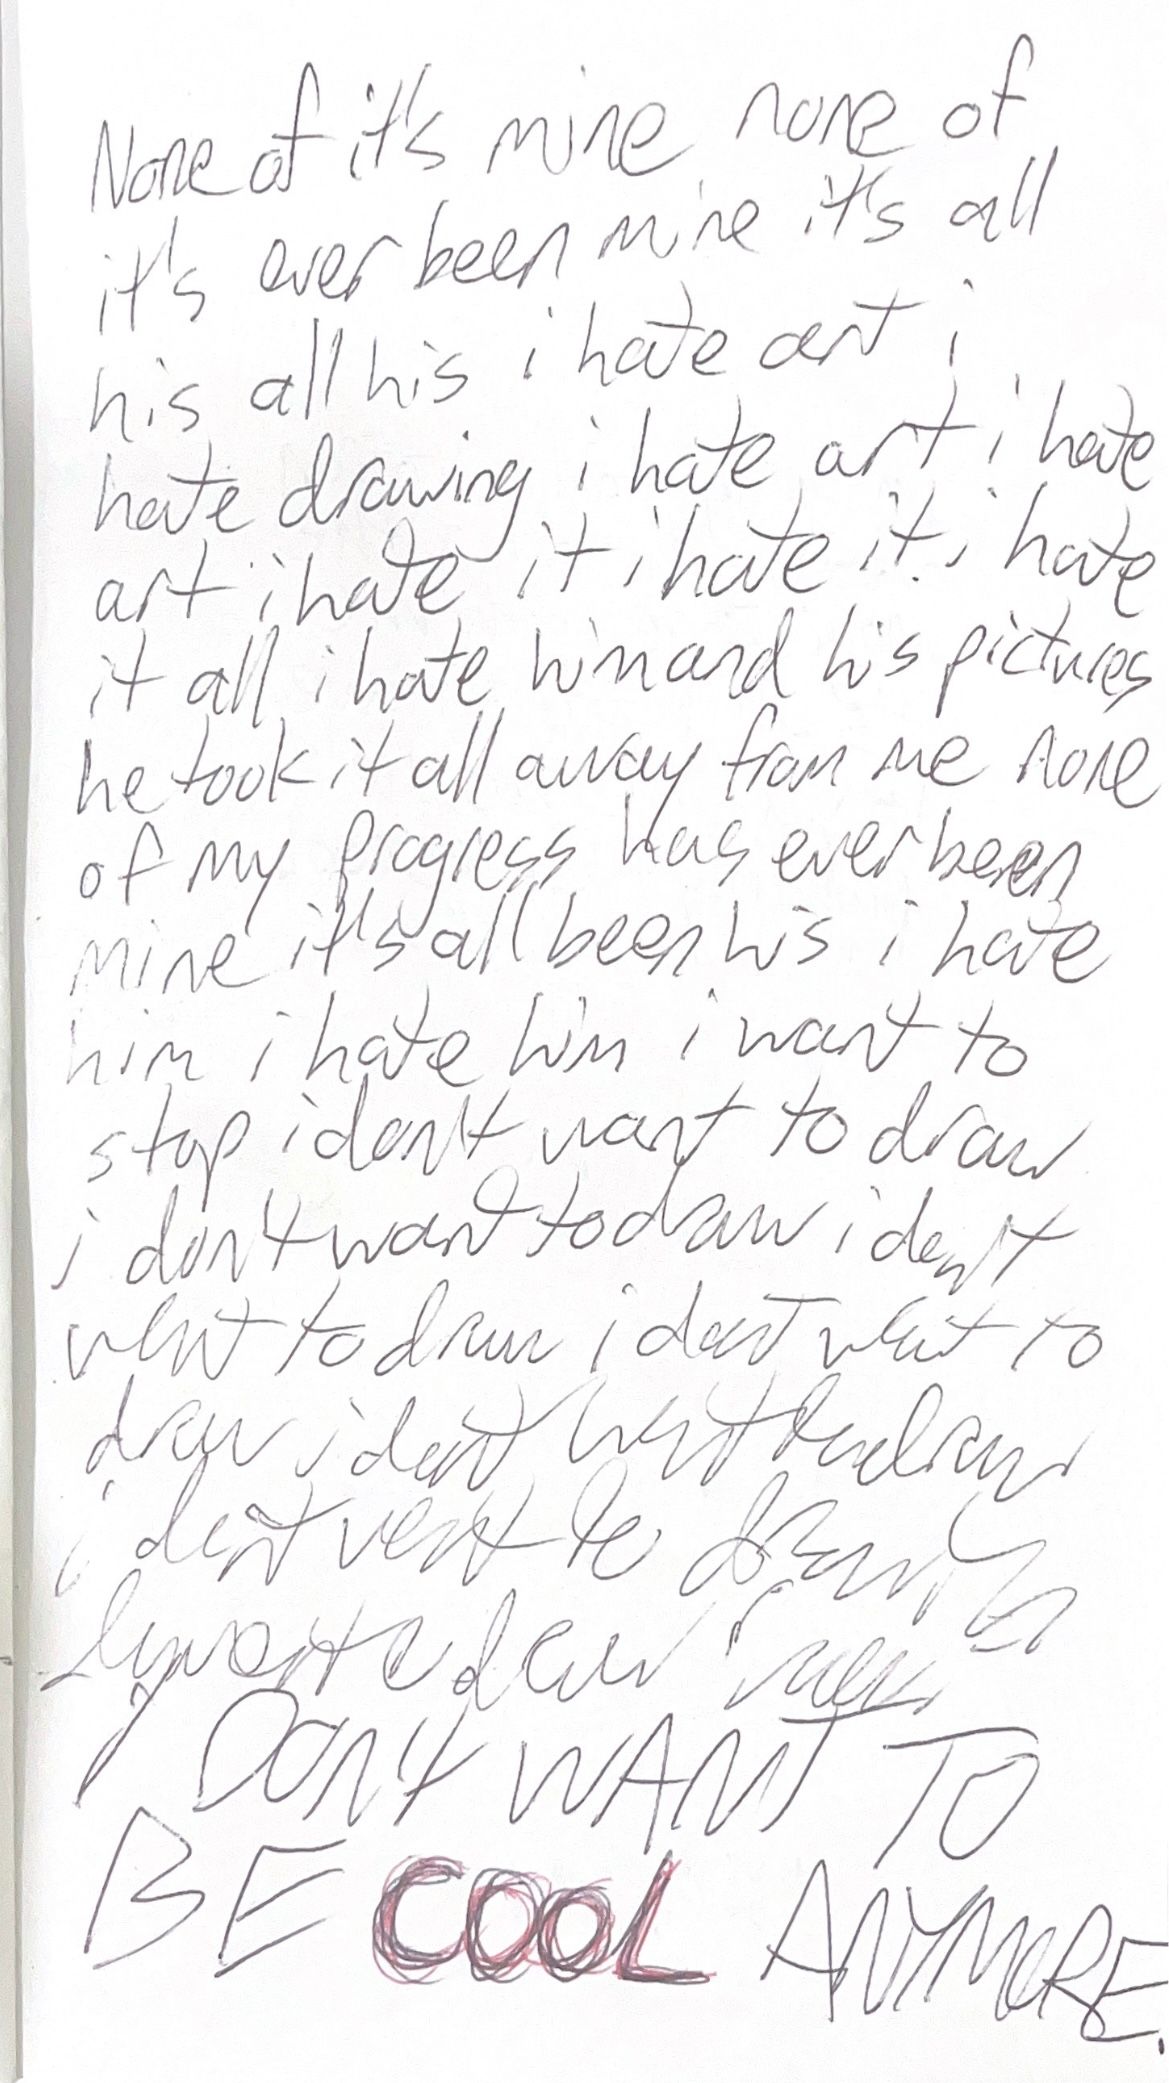 None of it's mine none of
it's ever been mine it's all
his all his i hate art i
hate drawing i hate art i hate
art i hate it i hate it i hate
it all i hate him and his pictures
he took it all away from me none
of my progress has ever been
mine it's all been his i hate
him i hate him i want to
stop i don't want to draw
i don't want to draw i don't
want to draw i dont want to
draw i dont want to draw
i dont want to draw
draw
I DON'T WANT TO
BE COOL ANYMORE.